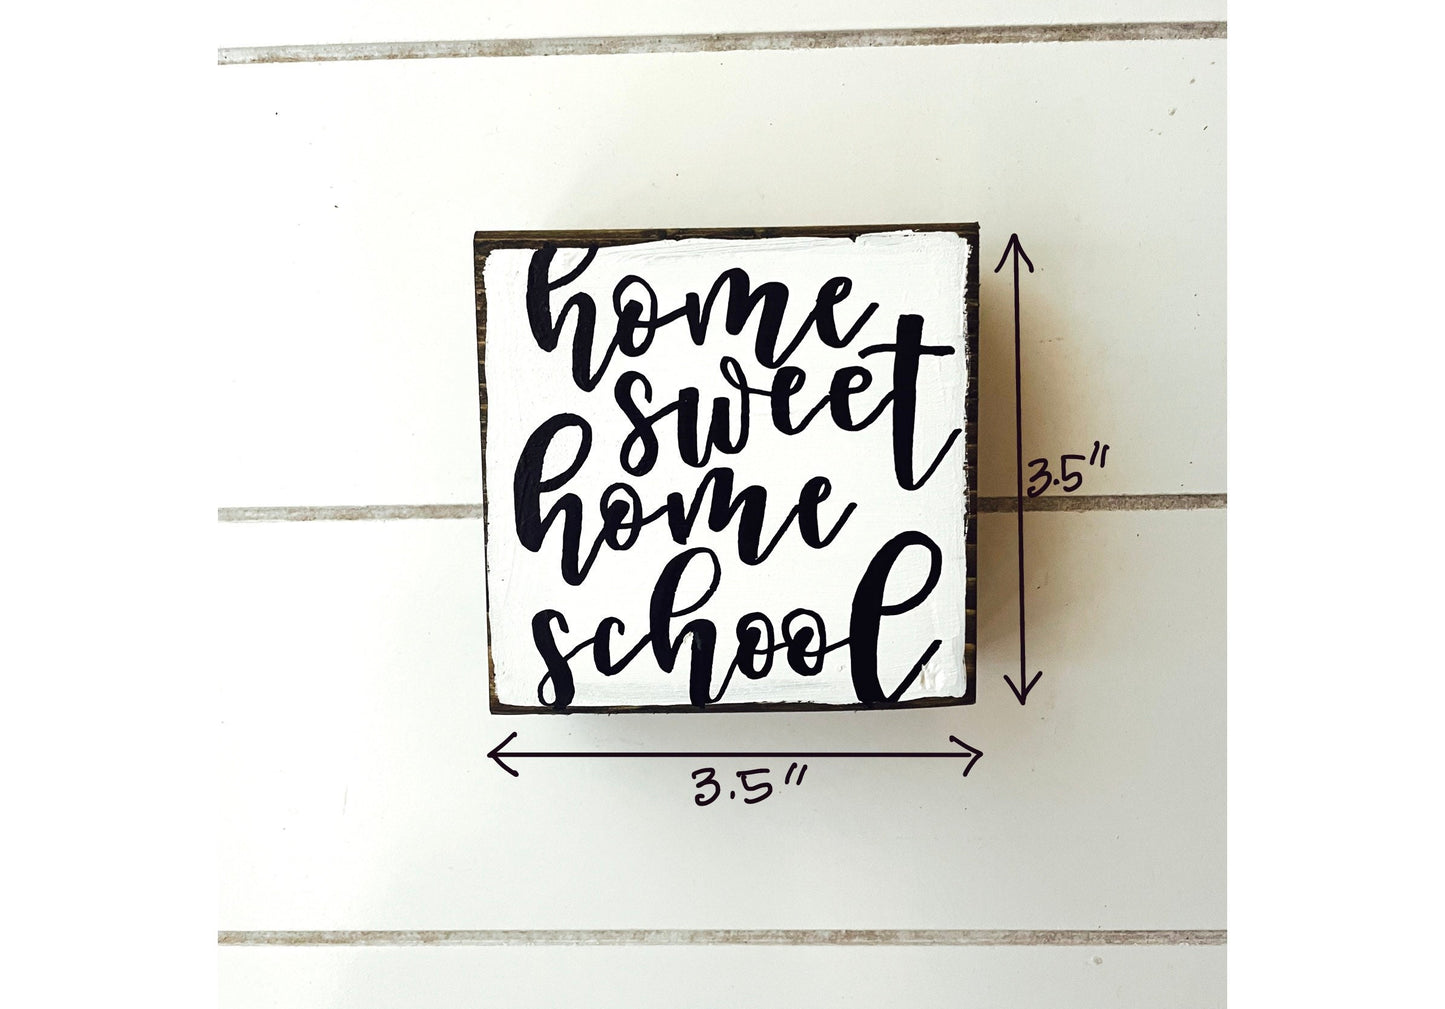 home
sweet
home
school
3.5"
3.5"